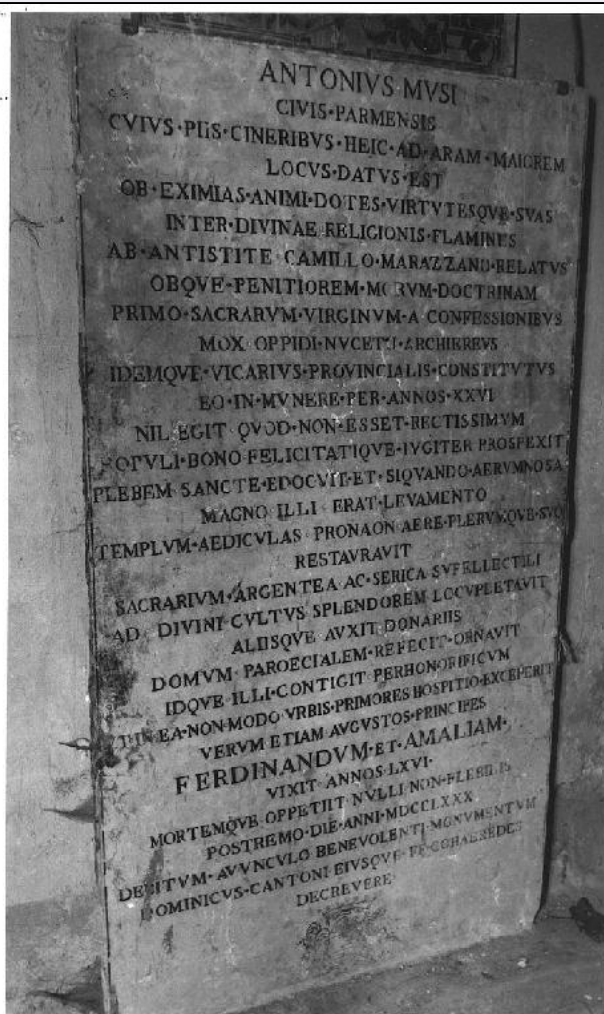 ANTONIVS·MVSI
CIVIS·PARMENSIS
CVIVS·PIIS·CINERIBVS·HEIC·AD·ARAM·MAIOREM
LOCVS·DATVS·EST
OB·EXIMIAS·ANIMI·DOTES·VIRTVTESQVE·SVAS
INTER·DIVINAE·RELIGIONIS·FLAMINES
AB·ANTISTITE CAMILLO·MARAZZANO·RELATVS
OBQVE·PENITIOREM·MORVM·DOCTRINAM
PRIMO·SACRARVM·VIRGINVM·A CONFESSIONIBVS
MOX OPPIDI·NVCETI·ARCHIEREVS
IDEMQVE·VICARIVS·PROVINCIALIS·CONSTITVTVS
EO·IN·MVNERE·PER·ANNOS·XXVI
NIL·EGIT QVOD·NON·ESSET·RECTISSIMVM
POPVLI·BONO FELICITATIQVE·IVGITER PROSPEXIT
PLEBEM SANCTE·EDOCVIT·ET·SIQVANDO·AERVMNOSA
MAGNO ILLI ERAT·LEVAMENTO
TEMPLVM·AEDICVLAS PRONAON AERE·PLERVMQVE·SVO
RESTAVRAVIT
SACRARIVM·ARGENTEA AC·SERICA SVPELLECTILI
AD DIVINI CVLTVS SPLENDOREM LOCVPLETAVIT
ALIISQVE AVXIT DONARIIS
DOMVM·PAROECIALEM·REFECIT·ORNAVIT
IDQVE ILLI·CONTIGIT PERHONORIFICVM
EA·NON·MODO VRBIS·PRIMORES HOSPITIO·EXCEPERIT
VERVM ETIAM AVGVSTOS·PRINCIPES
FERDINANDVM·ET·AMALIAM·
VIXIT ANNOS·LXVI·
MORTEMQVE OPPETIIT NVLLI NON·FLEBILIS
POSTREMO·DIE·ANNI·MDCCLXXX
DEBITVM·AVVNCVLO BENEVOLENTI·MONVMENTVM
DOMINICVS·CANTONI EIVSQVE COHAEREDES
DECREVERE